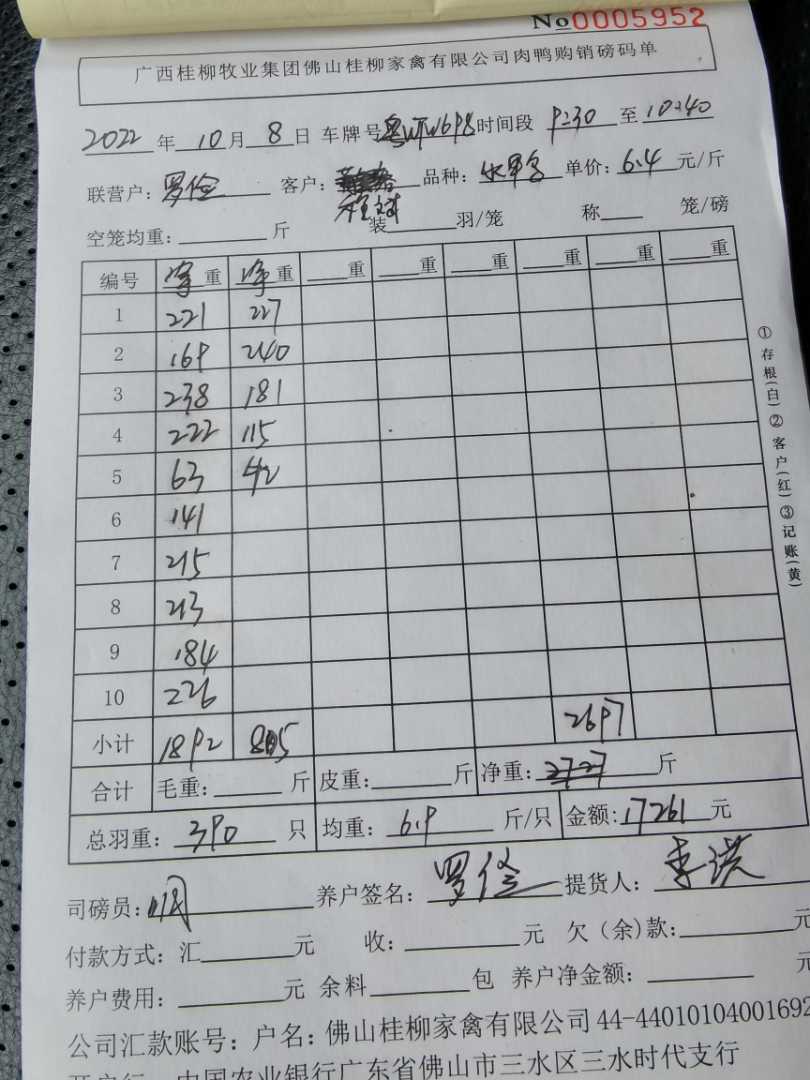 No0005952
广西桂柳牧业集团佛山桂柳家禽有限公司肉鸭购销磅码单
2022 年 10 月 8 日 车牌号 粤WTW698 时间段 9:30 至 10:40
联营户: 罗俭 客户: 程斌 品种: 单价: 6.4 元/斤
空笼均重: 斤 装 羽/笼 称 笼/磅
编号 净重 净重 重 重 重 重 重 重
1 221 227
2 169 240
3 238 181
4 222 115
5 63 42
6 141
7 215
8 213
9 184
10 226
小计 1892 805 2697
合计 毛重: 斤 皮重: 斤 净重: 2727 斤
总羽重: 390 只 均重: 6.9 斤/只 金额: 17261 元
司磅员: 养户签名: 罗俭 提货人: 李洪
付款方式: 汇 元 收: 元 欠(余)款: 元
养户费用: 元 余料 包 养户净金额: 元
公司汇款账号: 户名: 佛山桂柳家禽有限公司 44-44010104001692
中国农业银行广东省佛山市三水区三水时代支行
①存根(白)②客户(红)③记账(黄)